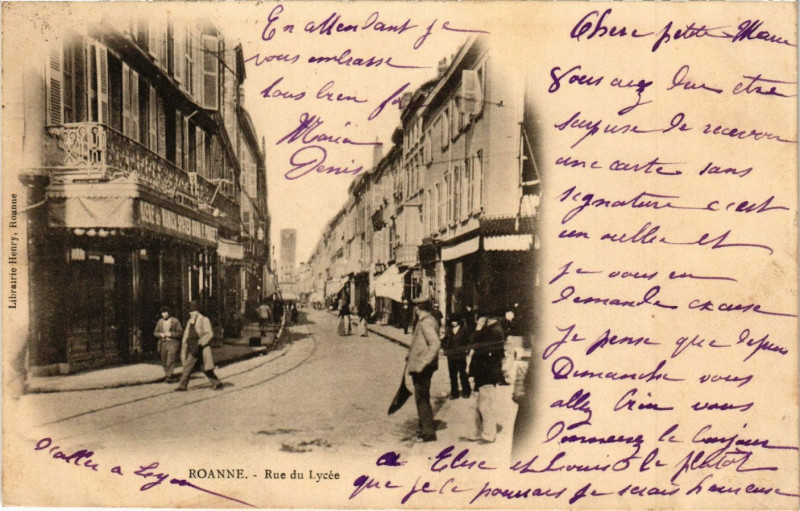 Chere petite Marie
Vous avez due etre
surpuse de recevoir
une carte sans
signature c'est
un oublie et
je vous en
demande excuse
Je pense que depuis
Dimanche vous
allez bien vous
donnerez le bonjour
a Elise et Louis le plutôt
que je le pourrais je serais heureuse
d'aller a Lyon
En attendant je
vous embrasse
tous bien fort
Maria
Denis
ROANNE. - Rue du Lycée
Librairie Henry, Roanne